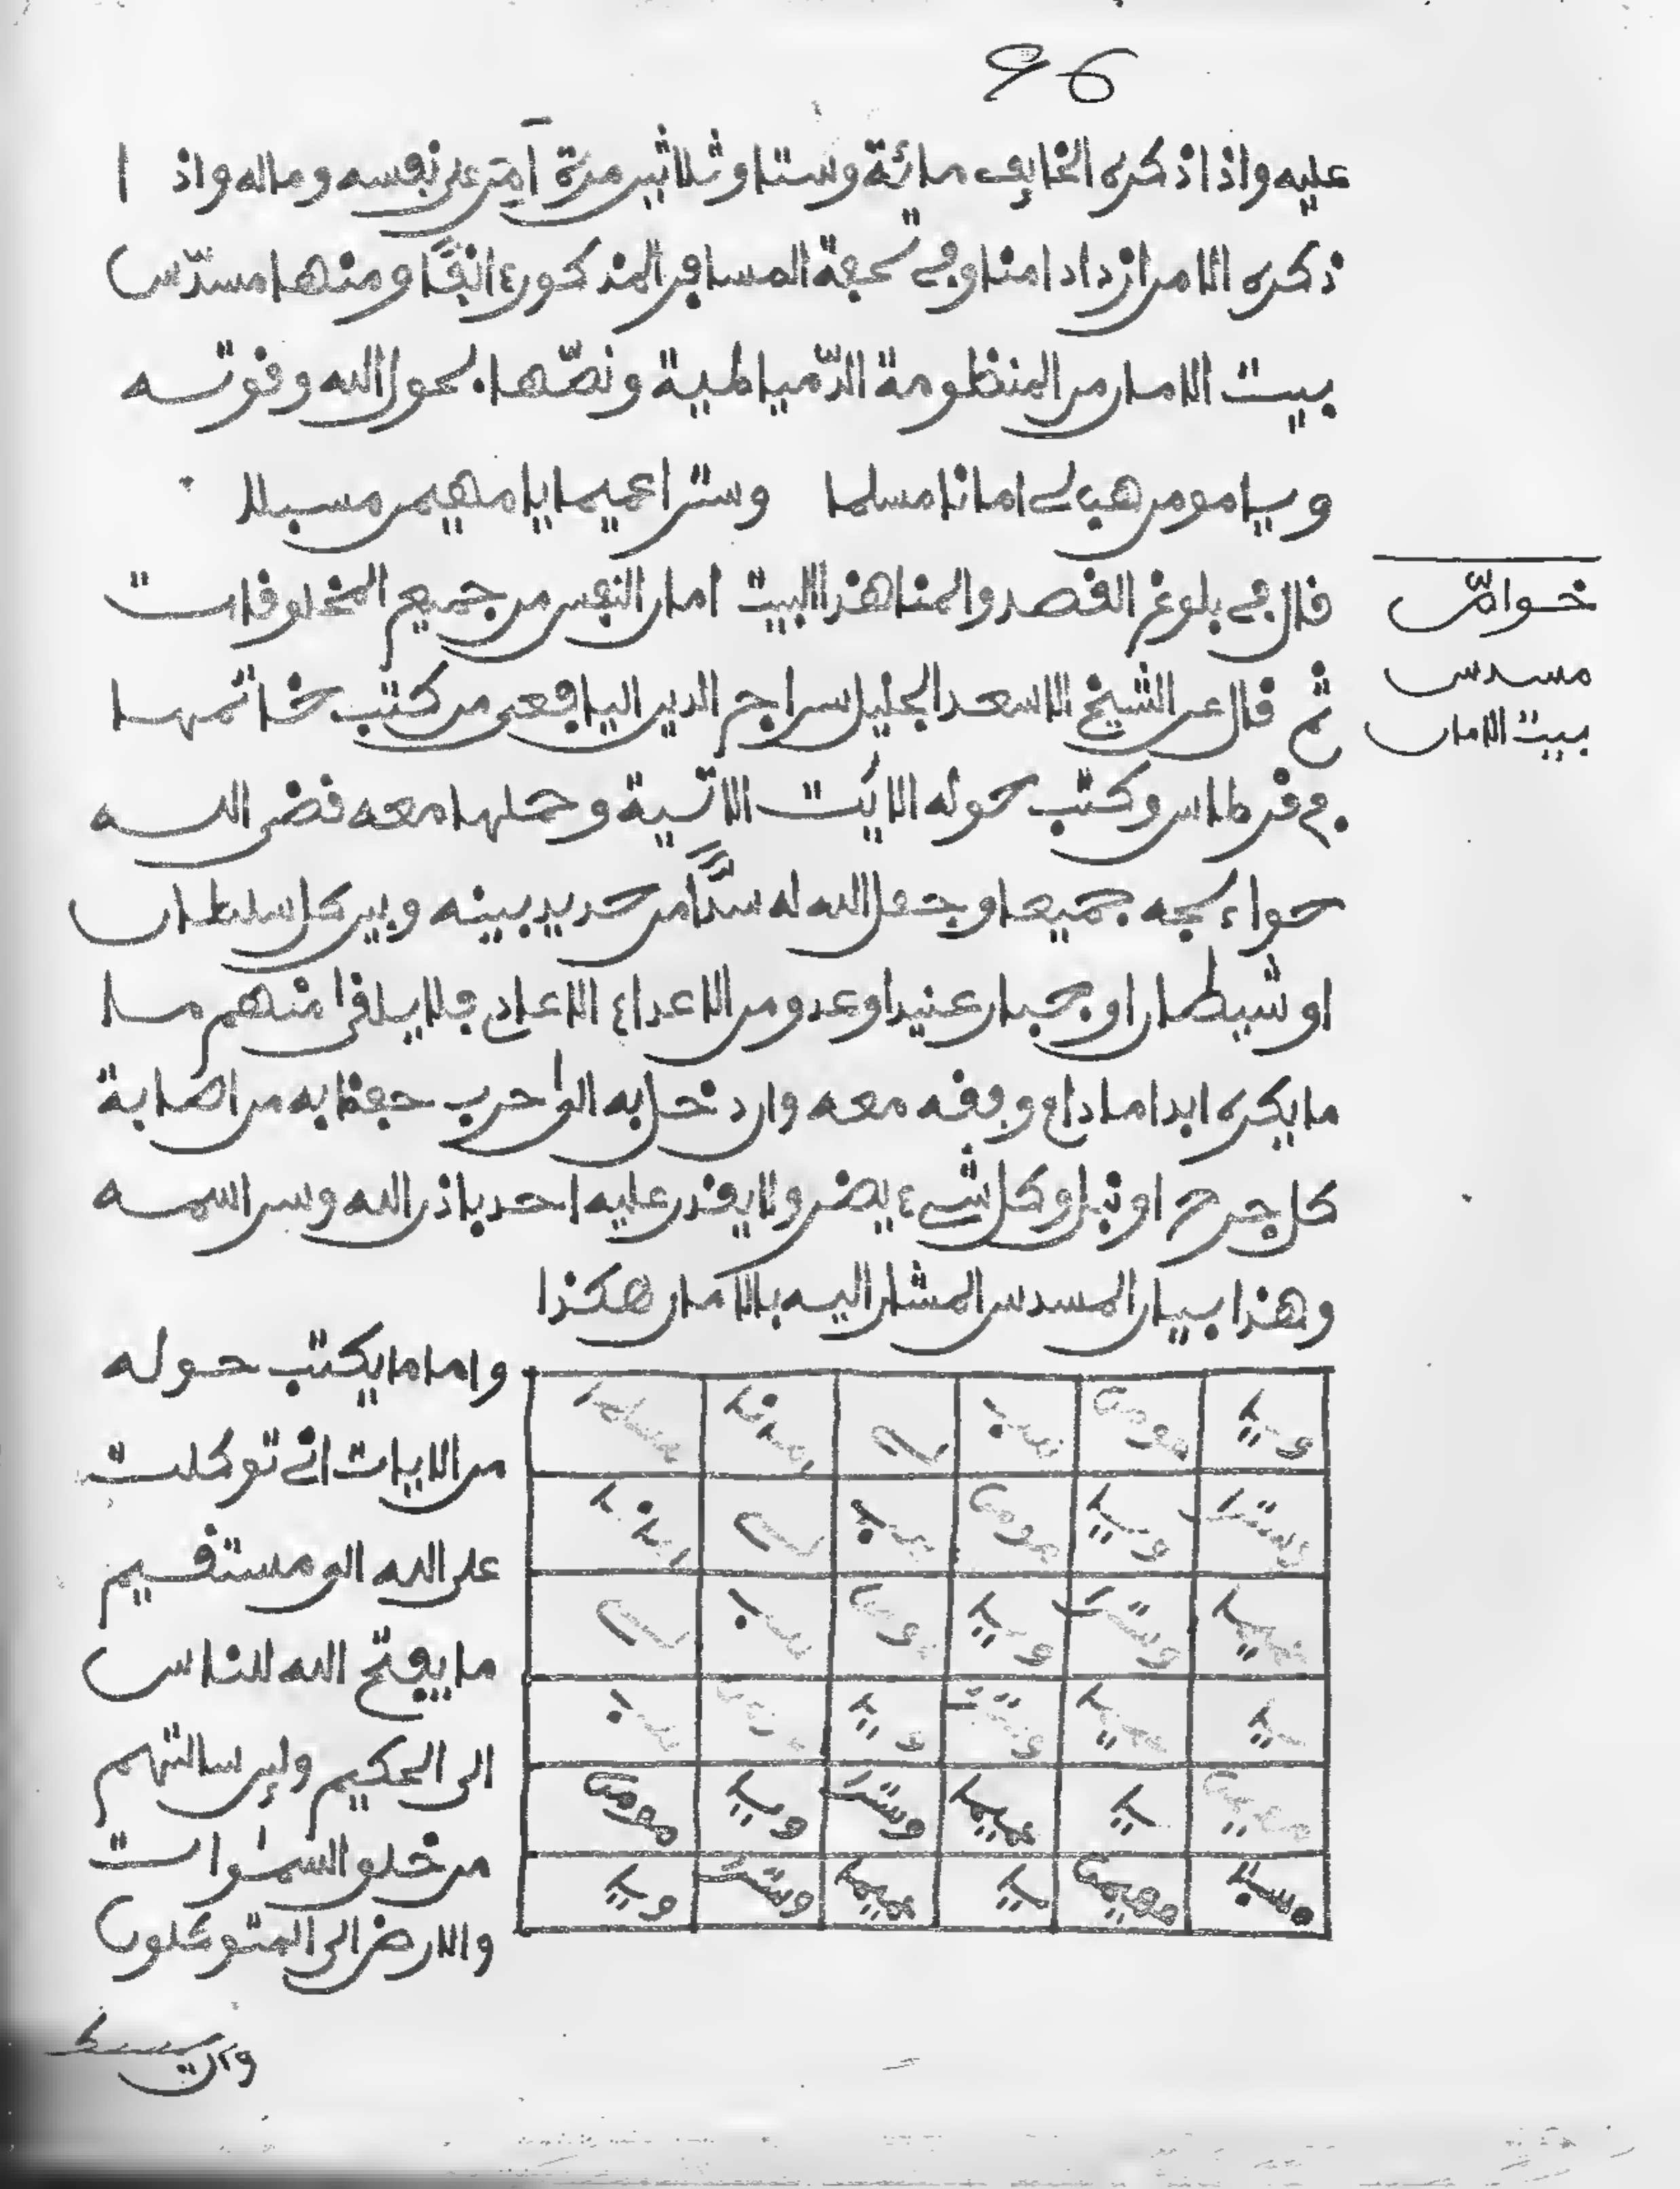 96
عليه واذا ذكره الخايف مائة وستا وثلاثين مرة آمن على نفسه وماله واذا
ذكره الامن ازداد امنا وفي تحفة المسافر المذكورة انفًا ومنها مسدّس
بيت الامان من المنظومة الدّمياطية ونصّها بحول الله وقوته
ويا مومن هب لي امانا مسلما وسترا عميما يا مهيمن مسبلا
قال في بلوغ القصد والمنا هذا البيت امان النفس من جميع المخلوقات
ثم قال عن الشيخ الاسعد الجليل سراج الدين اليافعي من كتب خاتمها
في قرطاس وكتب حوله الايٰت الاتية وحملها معه قضى الله
حواءجه جميعا وجعل الله له سدًّا من حديد بينه وبين كل سلطان
او شيطان او جبار عنيد او عدو من الاعداء الاعادي فلا يلقى منهم ما
ما يكره ابدا ما دام وفقه معه وان دخل به الى حرب حفظ به من اصابة
كل جرح او نبل وكل شيء يضر ولا يقدر عليه احد باذن الله وسر اسمه
وهذا بيان المسدس المشار اليه بالامان هكذا
خواصّ
مسدس
بيت الامان
ويا مومن هب لي امانا مسلما
وسترا ويا مومن هب لي امانا
عميما وسترا ويا مومن هب لي
يا عميما وسترا ويا مومن هب
مهيمن يا عميما وسترا ويا مومن
مسبلا مهيمن يا عميما وسترا ويا
واما ما يكتب حوله
من الايات اني توكلت
على الله الى مستقيم
ما يفتح الله للناس
الى الحكيم ولين سالتهم
من خلق السموات
والارض الى المتوكلون
وان يمسسك